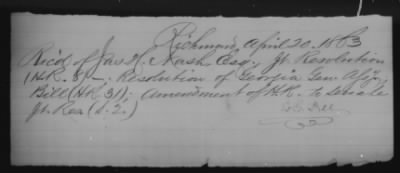 Richmond, April 20, 1863
Rec'd of Jas. H. Nash Esq., Jt. Resolution
(H.R. 8) - Resolution of Georgia Gen. Ass'y,
Bill (H.R. 31); Amendment of H.R. to Senate
Jt. Res (S. 2.)